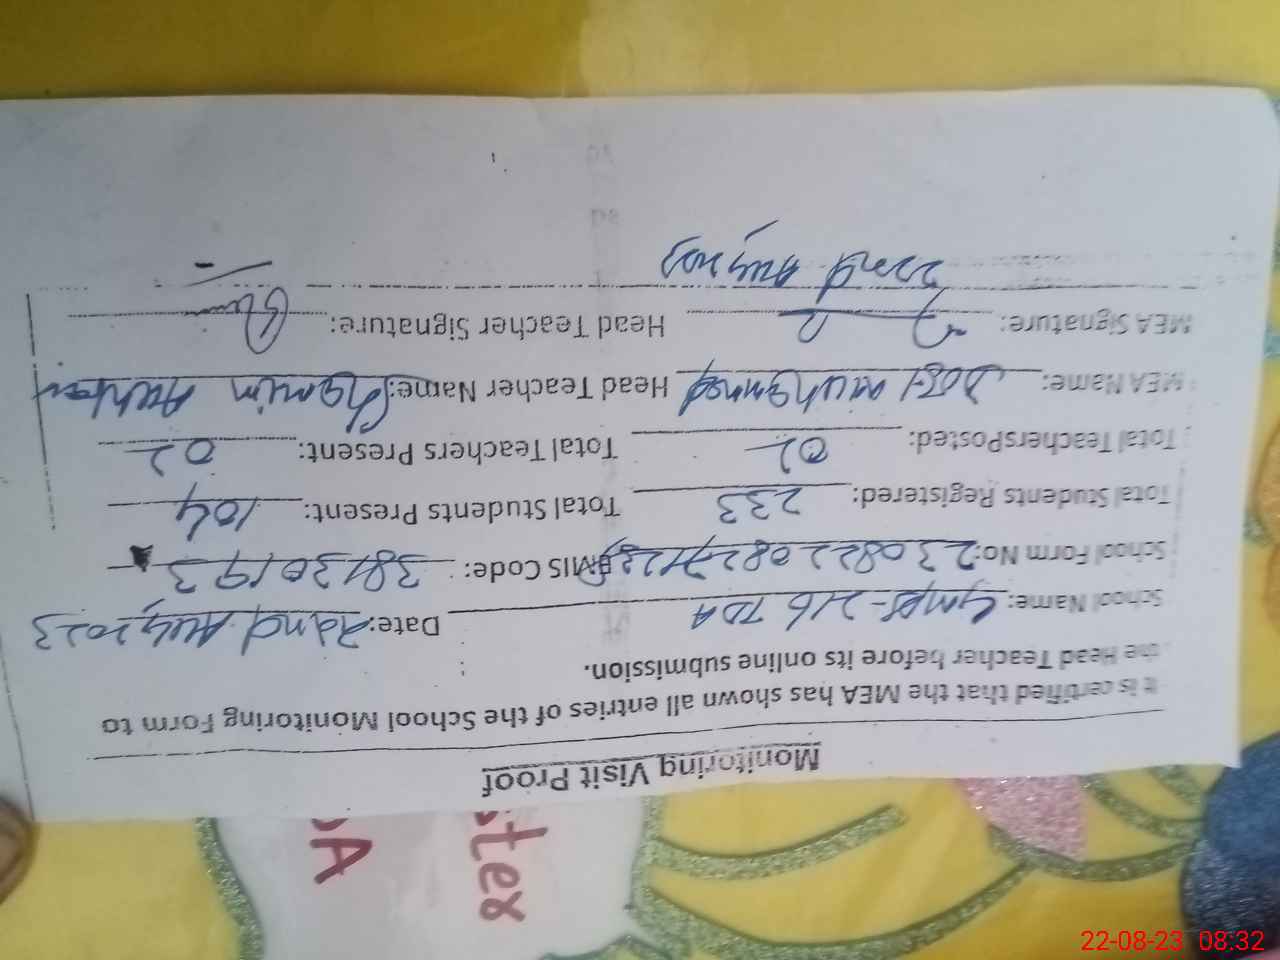 Monitoring Visit Proof
It is certified that the MEA has shown all entries of the School Monitoring Form to
the Head Teacher before its online submission.
School Name: GMPS-216 TDA Date: 22nd Aug 2023
School Form No: EMIS Code: 38130193
Total Students Registered: 233 Total Students Present: 104
Total Teachers Posted: 02 Total Teachers Present: 02
MEA Name: Dost Muhammad Head Teacher Name: Shamim Akhtar
MEA Signature: Head Teacher Signature:
22nd Aug 2023
22-08-23 08:32